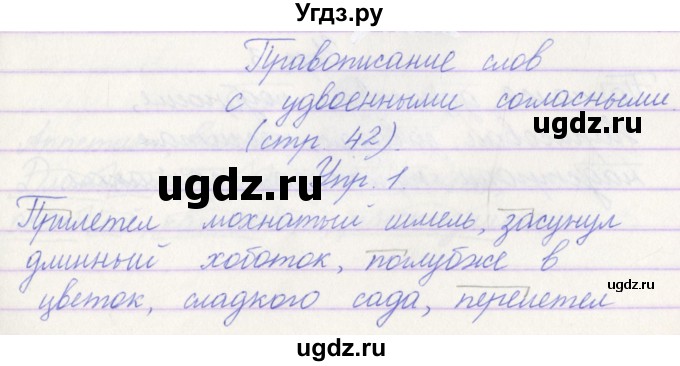 Угдз.ру
Правописание слов
с удвоенными согласными
ugdz.ru
(стр. 42).
ugdz.ru
Упр. 1.
Прилетел мохнатый шмель, засунул
длинный хоботок, поглубже в
ugdz.ru
цветок, сладкого сада, перелетел
ugdz.ru